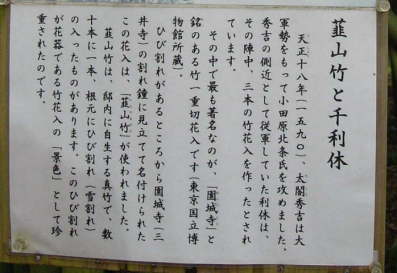 韮山竹と千利休
天正十八年(一五九〇)、太閤秀吉は大
軍勢をもって小田原北条氏を攻めました。
秀吉の側近として従軍していた利休は、
その陣中、三本の竹花入を作ったとされ
ています。
その中で最も著名なのが、「園城寺」と
銘のある竹一重切花入です(東京国立博
物館所蔵)。
ひび割れがあるところから園城寺(三
井寺)の割れ鐘に見立てて名付けられた
この花入は、「韮山竹」が使われました。
韮山竹は、邸内に自生する真竹で、数
十本に一本、根元にひび割れ(雪割れ)
の入ったものがあります。このひび割れ
が花器である竹花入の「景色」として珍
重されたのです。